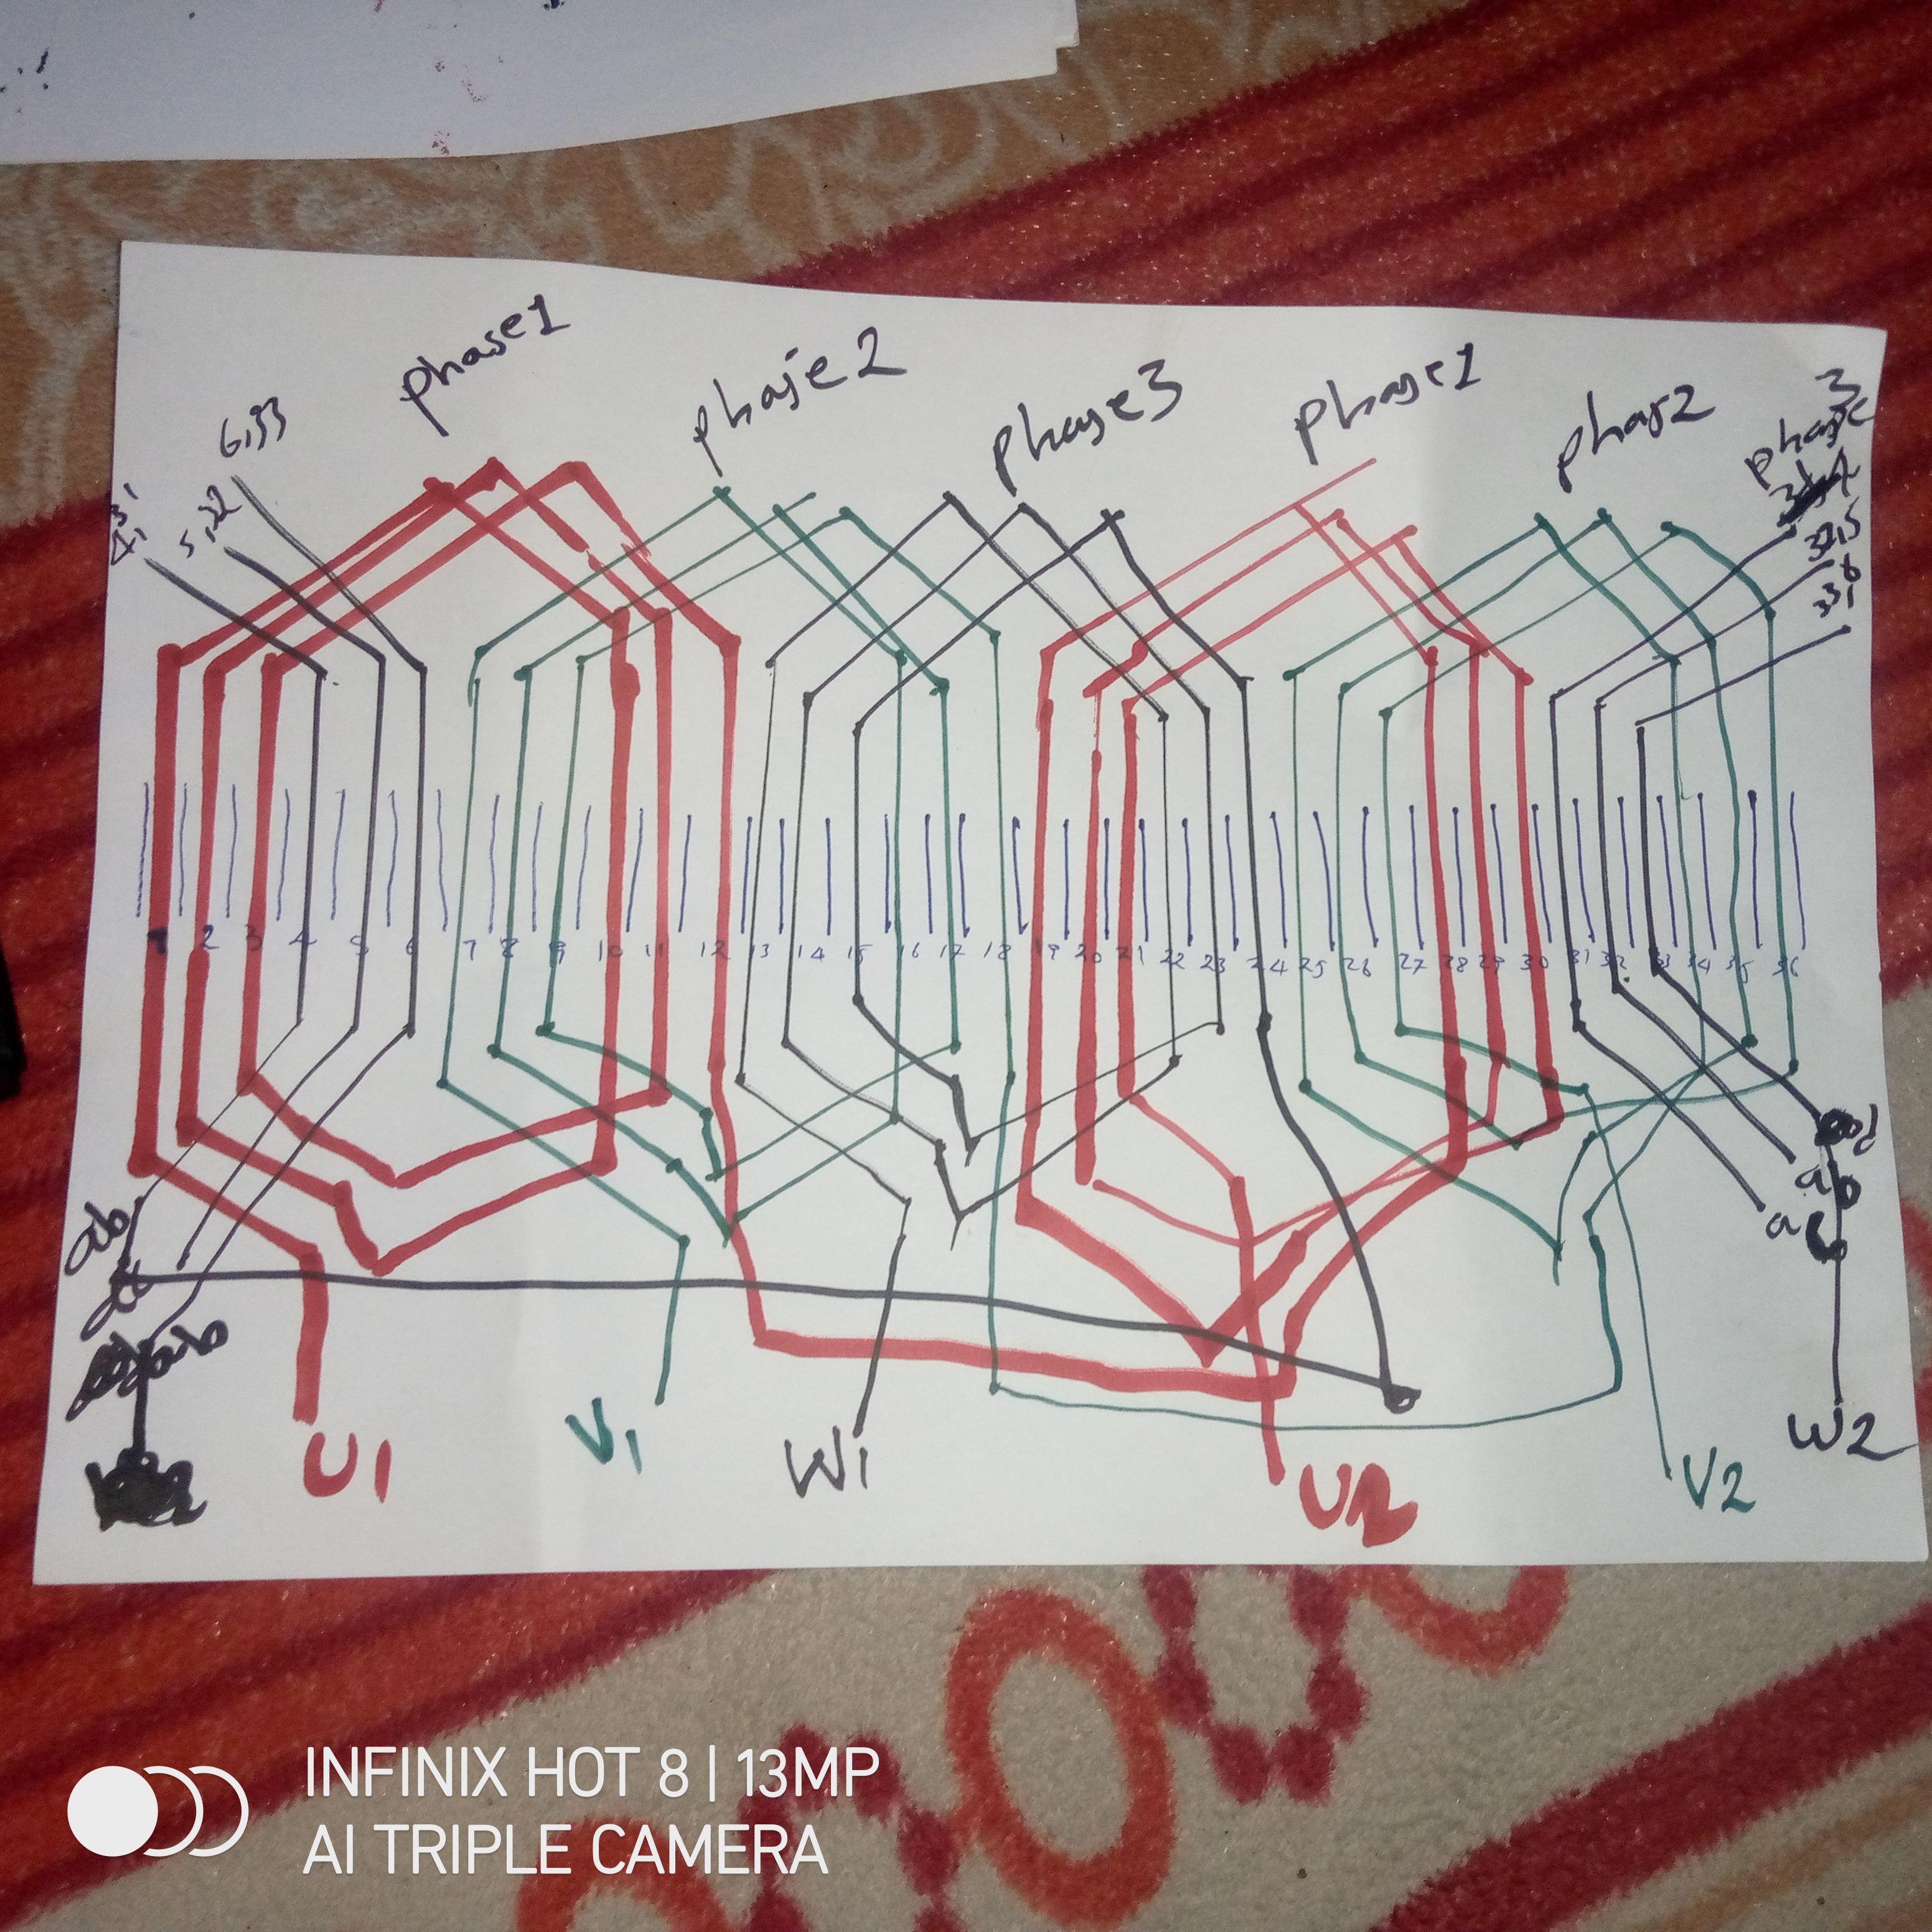 phase1
phaje2
phase3
phase1
phas2
phase
3
6,33
5,22
4,
31
32,5
331
1 2 3 4 5 6 7 8 9 10 11 12 13 14 15 16 17 18 19 20 21 22 23 24 25 26 27 28 29 30 31 32 33 34 35 36
ab
ab
U1
V1
W1
U2
V2
W2
INFINIX HOT 8 | 13MP
AI TRIPLE CAMERA